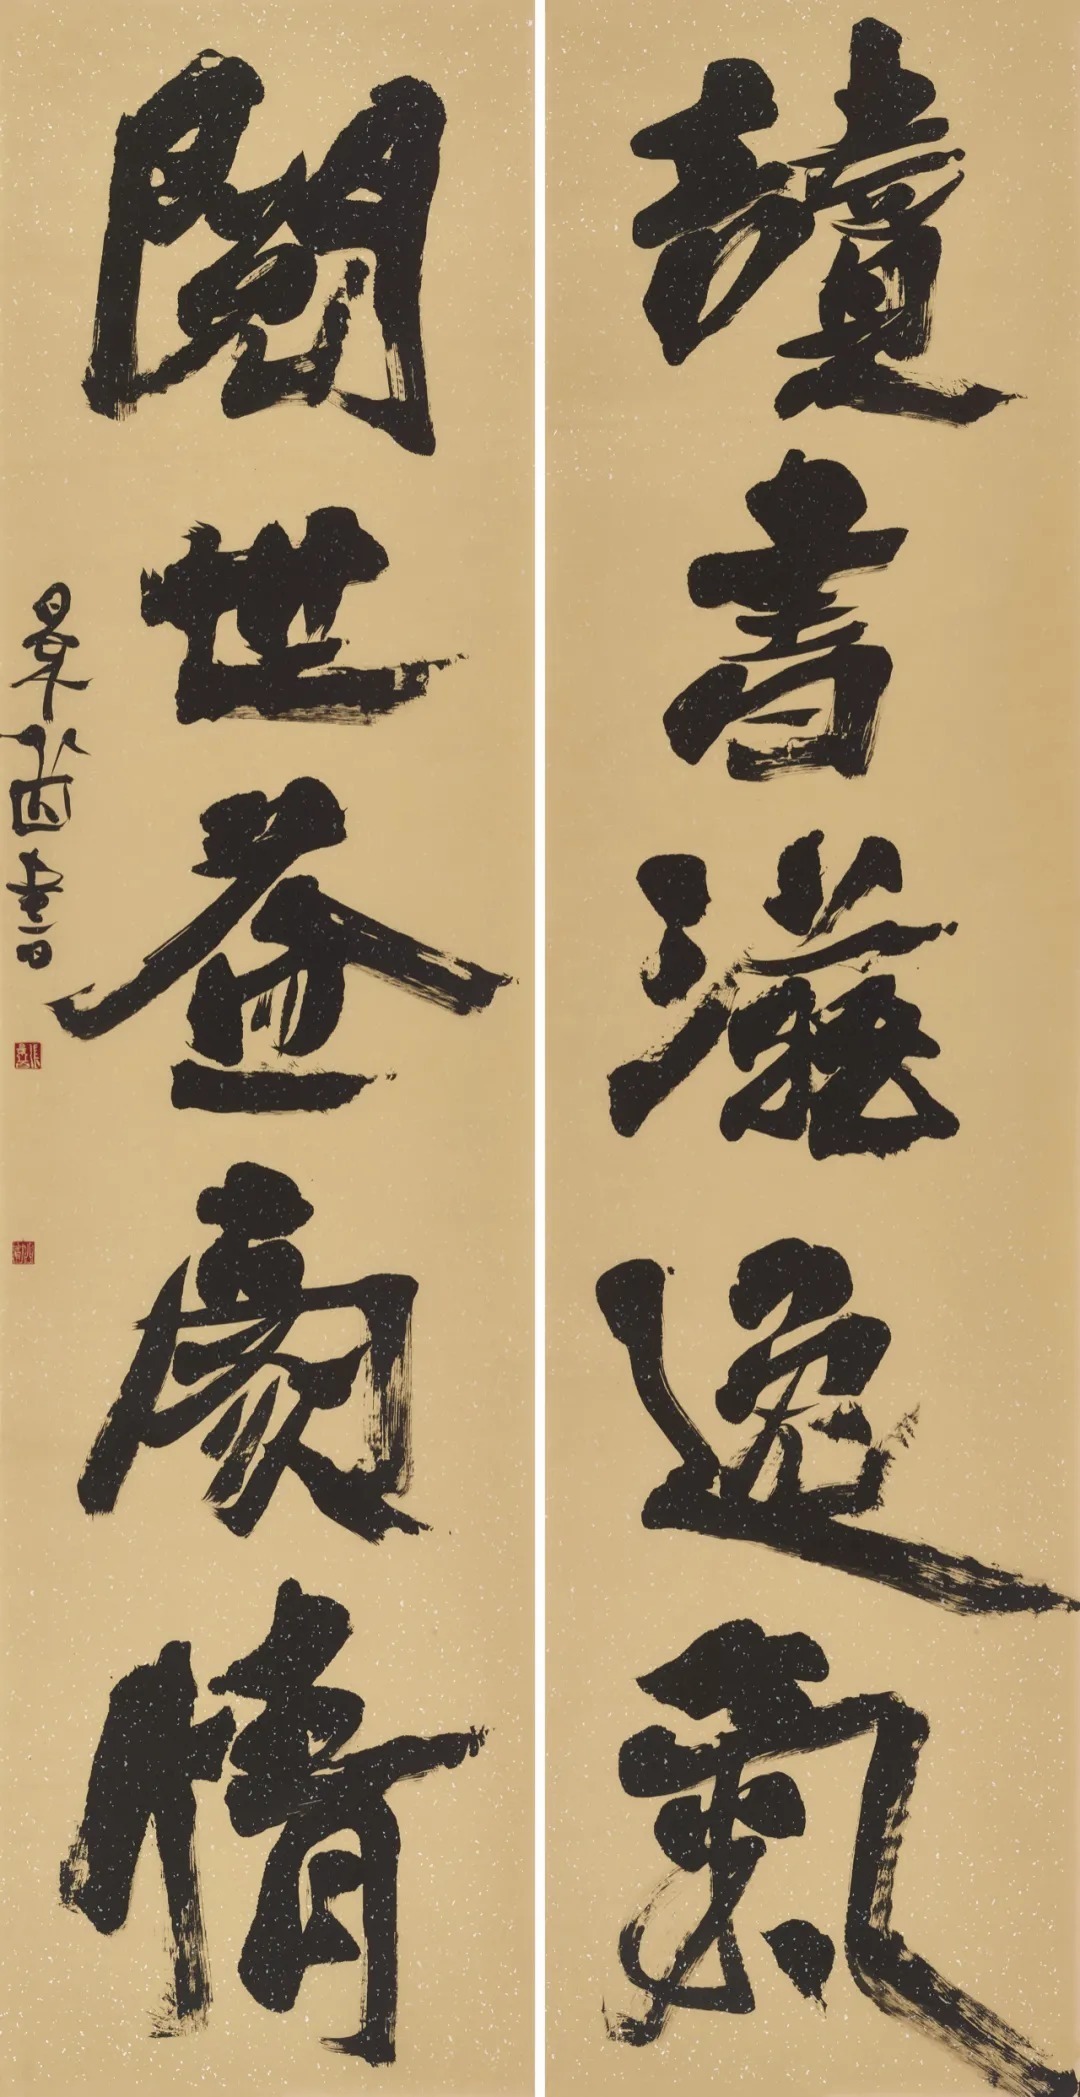 讀書滋逸氣
閱世益豪情
書